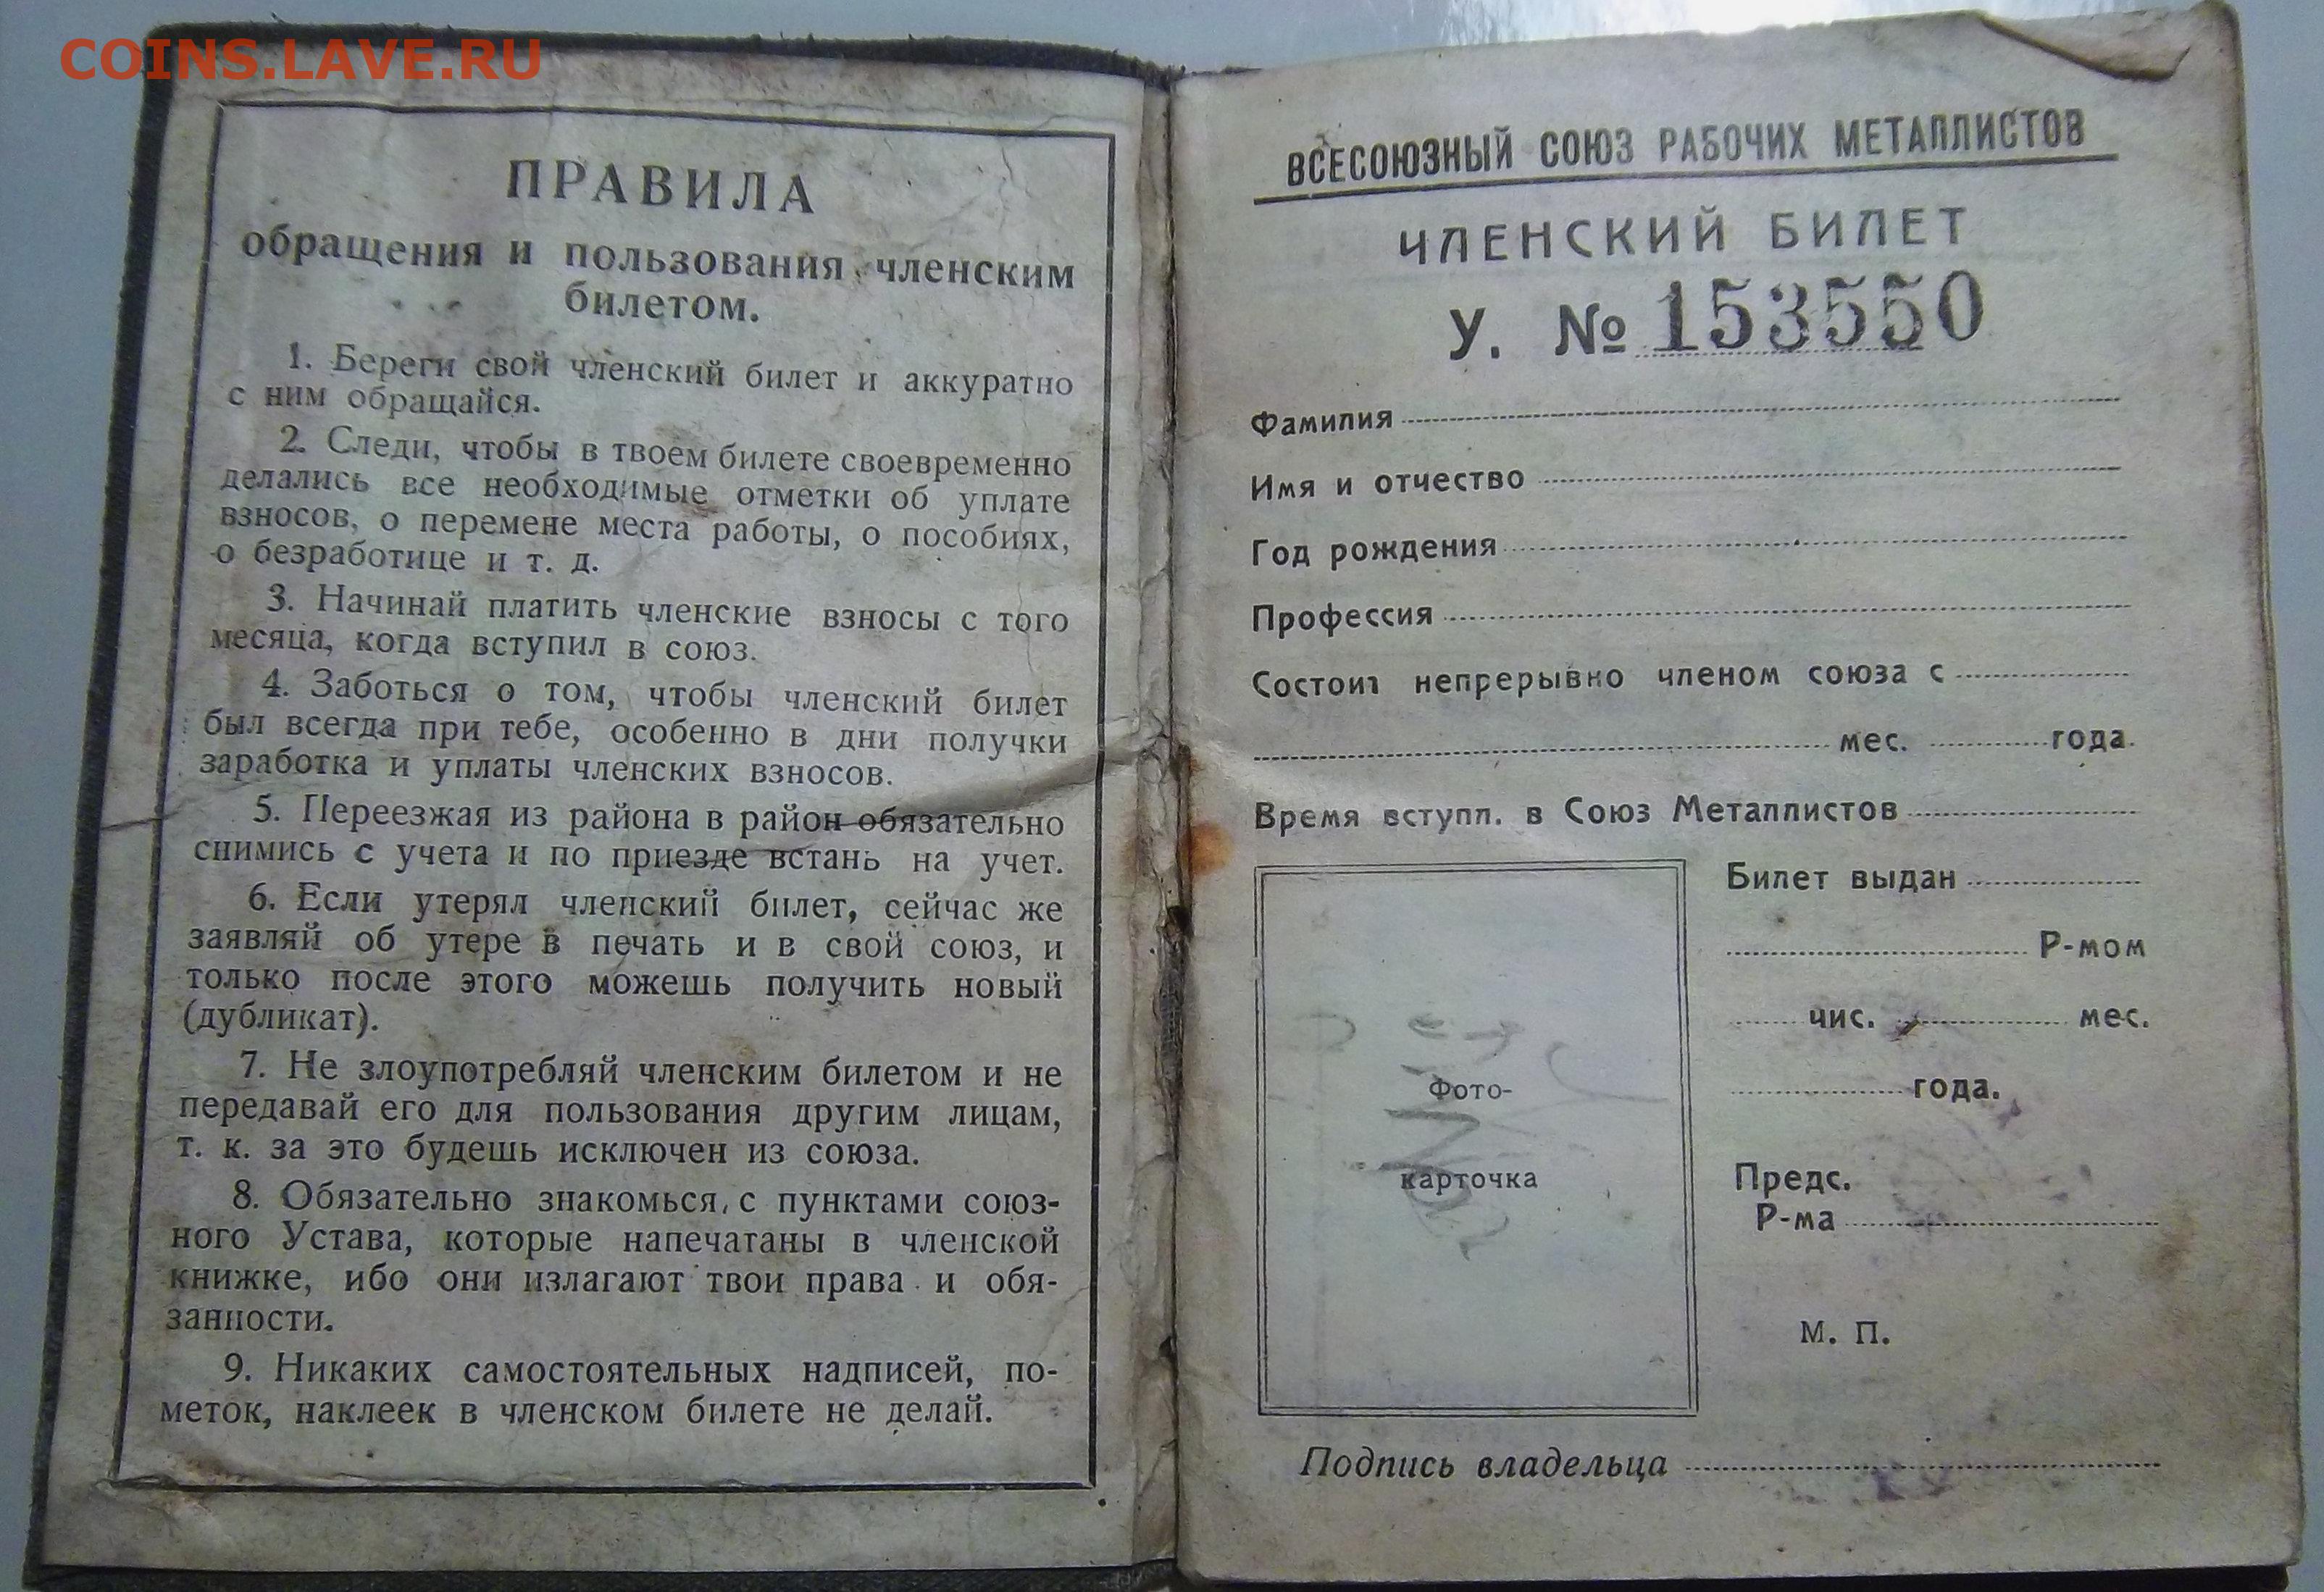 COINS.LAVE.RU
ПРАВИЛА
обращения и пользования членским
билетом.
1. Береги свой членский билет и аккуратно
с ним обращайся.
2. Следи, чтобы в твоем билете своевременно
делались все необходимые отметки об уплате
взносов, о перемене места работы, о пособиях,
о безработице и т. д.
3. Начинай платить членские взносы с того
месяца, когда вступил в союз.
4. Заботься о том, чтобы членский билет
был всегда при тебе, особенно в дни получки
заработка и уплаты членских взносов.
5. Переезжая из района в район обязательно
снимись с учета и по приезде встань на учет.
6. Если утерял членский билет, сейчас же
заявляй об утере в печать и в свой союз, и
только после этого можешь получить новый
(дубликат).
7. Не злоупотребляй членским билетом и не
передавай его для пользования другим лицам,
т. к. за это будешь исключен из союза.
8. Обязательно знакомься, с пунктами союз-
ного Устава, которые напечатаны в членской
книжке, ибо они излагают твои права и обя-
занности.
9. Никаких самостоятельных надписей, по-
меток, наклеек в членском билете не делай.
ВСЕСОЮЗНЫЙ СОЮЗ РАБОЧИХ МЕТАЛЛИСТОВ
ЧЛЕНСКИЙ БИЛЕТ
У. № 153550
Фамилия
Имя и отчество
Год рождения
Профессия
Состоит непрерывно членом союза с
мес. года.
Время вступл. в Союз Металлистов
Билет выдан
Р-мом
чис. мес.
года.
Фото-
карточка
Предс.
Р-ма
М. П.
Подпись владельца